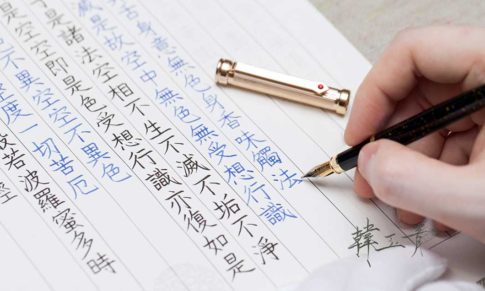 舌身意無色身香味觸法
滅是故空中無色無受想行識
是諸法空相不生不滅不垢不淨
是空空即是色受想行識亦復如是
不異空空不異色
度一切苦厄
般若波羅蜜多時
韓玉